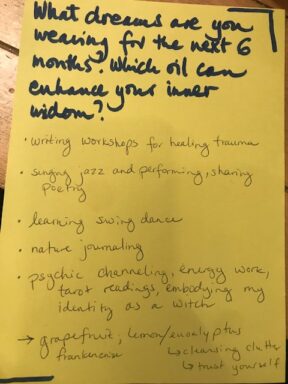 What dreams are you
weaving for the next 6
months? Which oil can
enhance your inner
widom?
• writing workshops for healing trauma
• singing jazz and performing, sharing
poetry
• learning swing dance
• nature journaling
• psychic channeling, energy work,
tarot readings, embodying my
identity as a witch
→ grapefruit, lemon/eucalyptus
frankincense ↳ cleansing clutter
↳ trust yourself